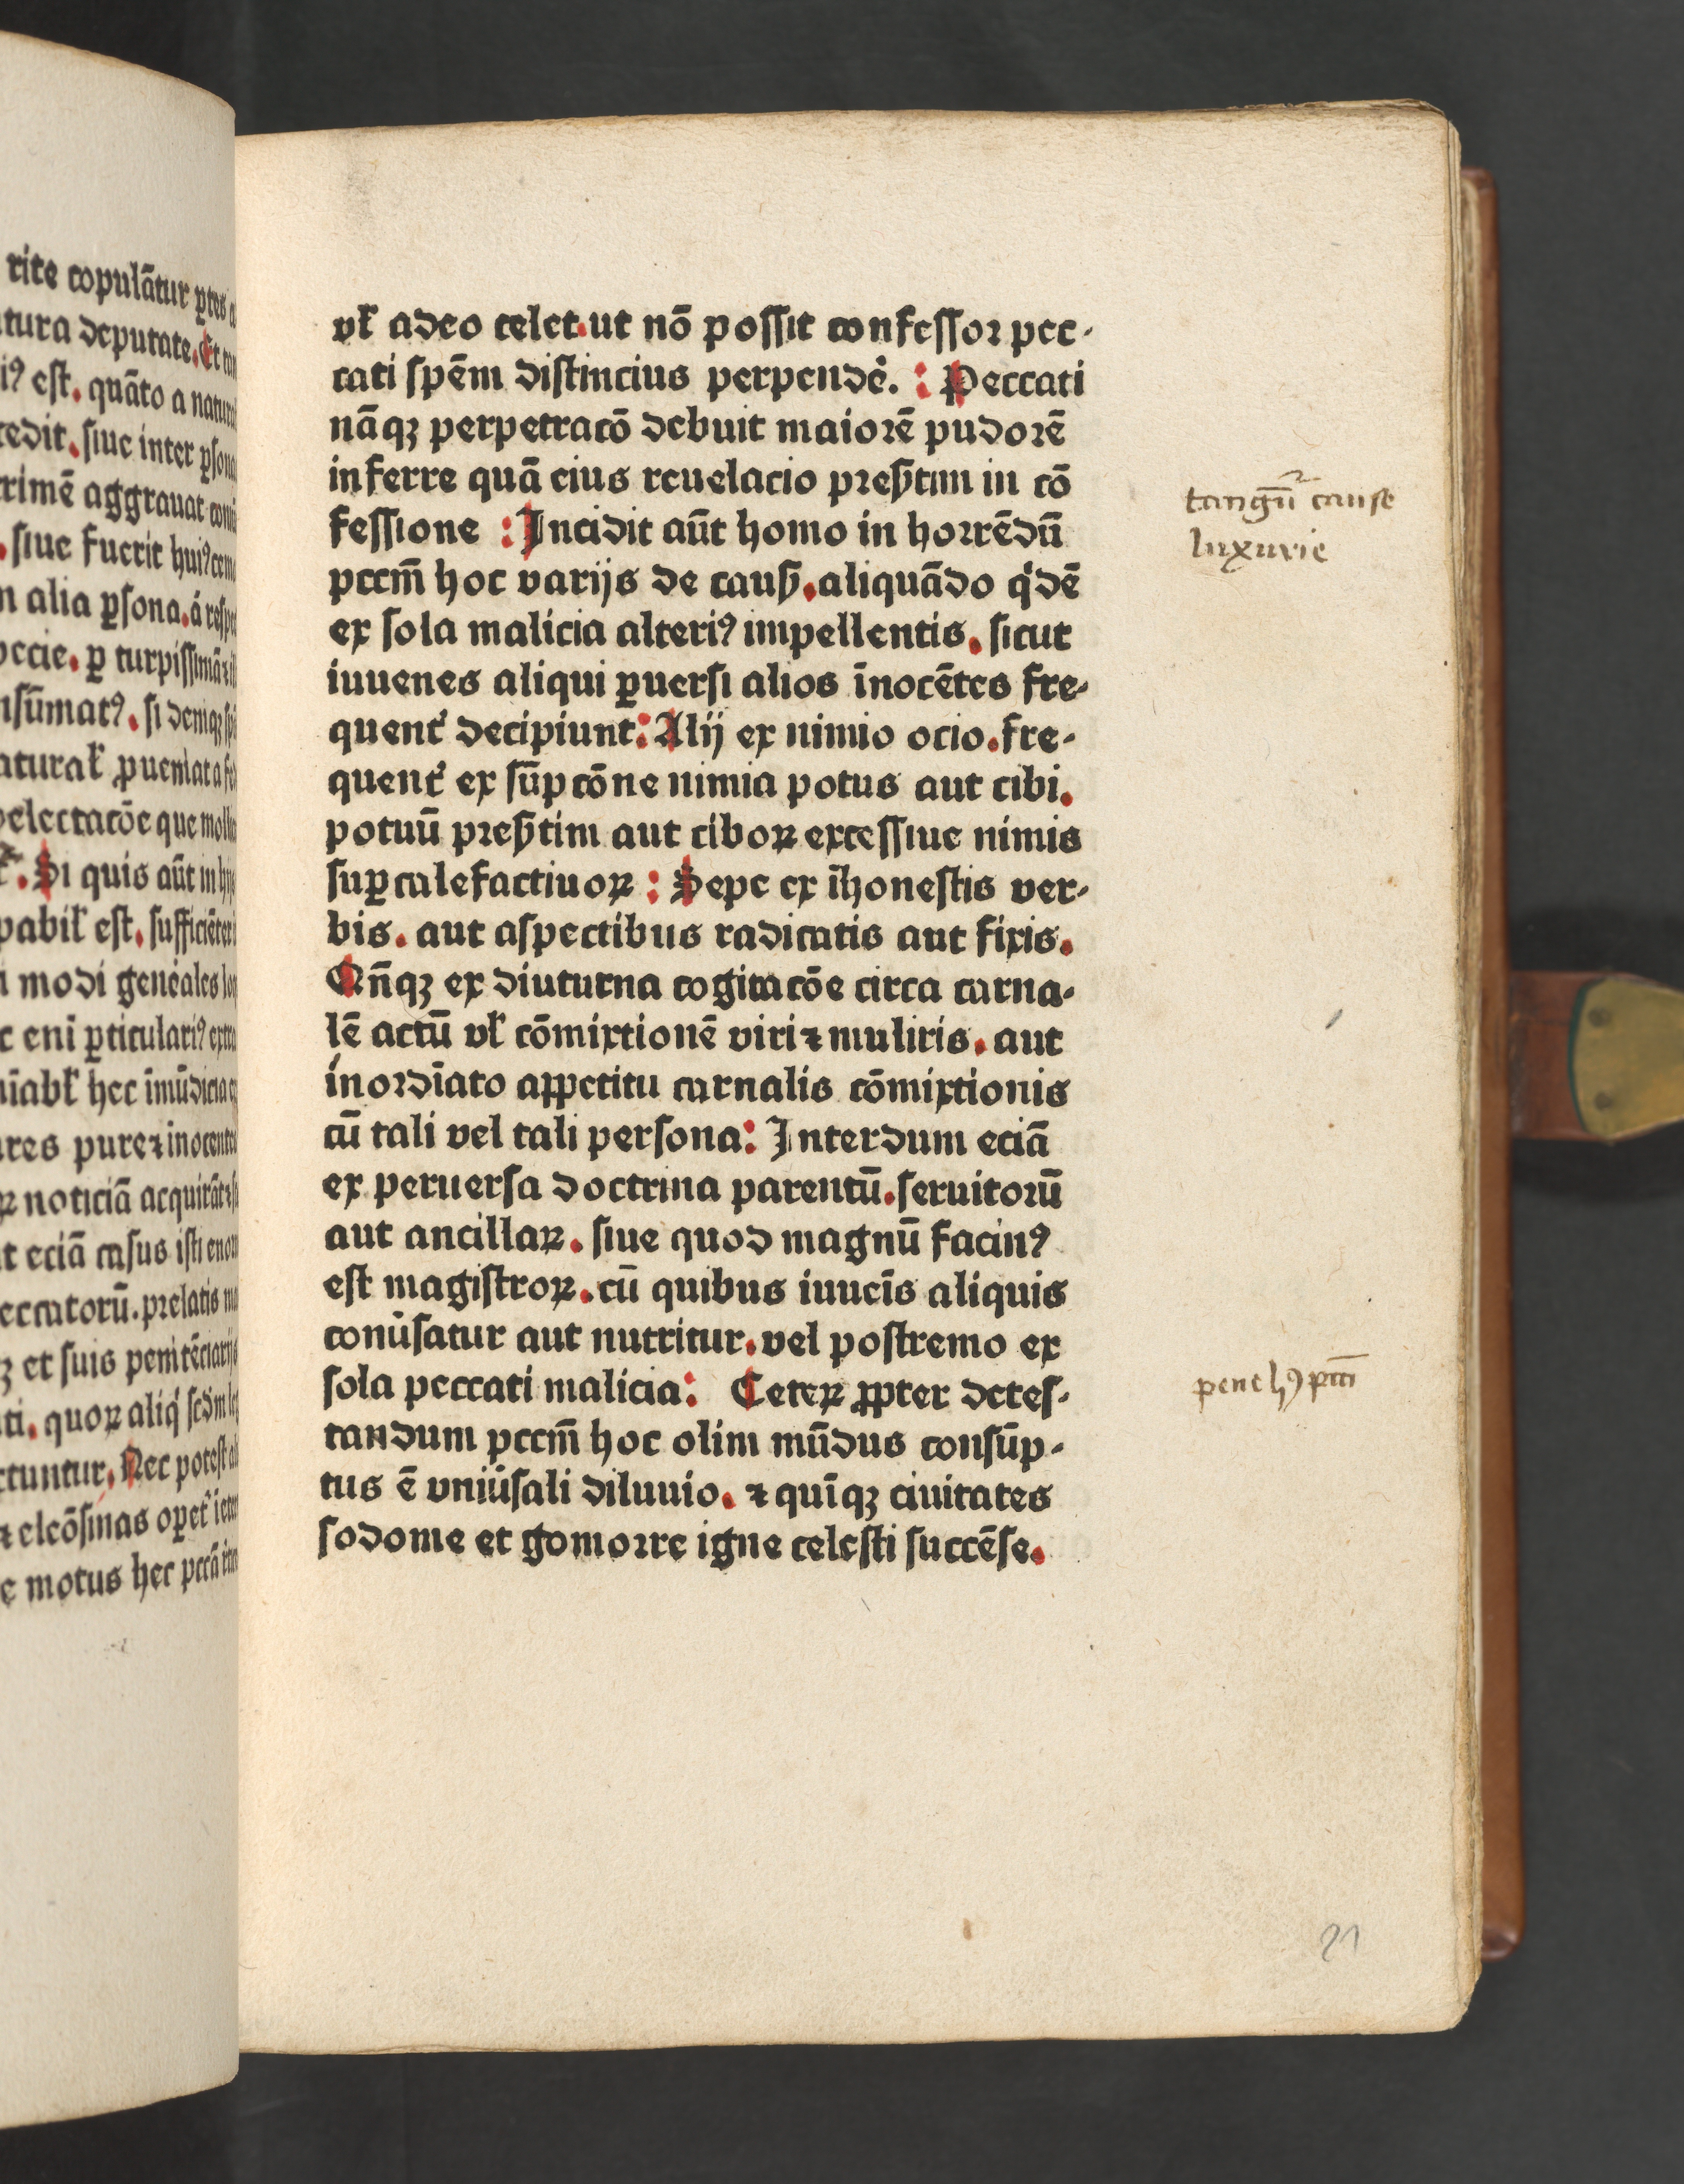 rite copulāt̄ur ꝑtes
tura deputate. Et tan
iꝰ est. quāto a natural
cedit. siue inter ꝑsona
crimē aggrauat
siue fuerit huiꝰcem
n alia ꝑsona. á respe
pecie. ꝑ turpissimā
nsūmatꝰ. si deniqꝫ
atural̄ ꝓueniat a
delectacōe que mol
Si quis aūt in
pabil̄ est. sufficiēter
modi gen̄ales
c eni ꝑticulariꝰ extra
niabl̄ hec īmūdicia
ares pure ⁊ inocentes
ꝝ noticiā acquirāt
t eciā casus isti enor
eccatorū. prelatis
ꝫ et suis penitēciarijs
ti. quoꝝ aliq̇ scdm leg
ctuntur. Nec potest
⁊ eleōsinas oꝑet̉
e motus hec pccā
vl̄ adeo celet. ut nō possit confessor pec-
cati spēm distincius perpendẻ. : Peccati
nāqꝫ perpetracō debuit maiorē pudorē
inferre quā eius reuelacio preſꝭtim in cō
fessione : Incidit aūt homo in horrēdū
pccm̄ hoc varijs de cauſꝭ. aliquādo q̇dē
ex sola malicia alteriꝰ impellentis. sicut
iuuenes aliqui ꝑuersi alios īnocētes fre-
quent̉ decipiunt: Alij ex nimio ocio. fre-
quent̉ ex sūpcōne nimia potus aut cibi.
potuū preſꝭtim aut ciboꝝ excessiue nimis
suꝑcalefactiuoꝝ : Sepe ex īhonestis ver-
bis. aut aspectibus radicatis aut fixis.
Qn̄qꝫ ex diuturna cogitacōe circa carna-
lē actū vl̄ cōmixtionē viri ⁊ muliris. aut
inordīato appetitu carnalis cōmixtionis
cū tali vel tali persona: Interdum eciā
ex peruersa doctrina parentū. seruitorū
aut ancillaꝝ. siue quod magnū facinꝰ
est magistroꝝ. cū quibus iuuēis aliquis
conūsatur aut nutritur. vel postremo ex
sola peccati malicia: Ceteꝝ ꝓpter detes-
tandum pccm̄ hoc olim mūdus consūp-
tus ē vniūsali diluuio. ⁊ quīqꝫ ciuitates
sodome et gomorre igne celesti succēse.
tangūr cause
luxurie
pene hꝰ pcti
21